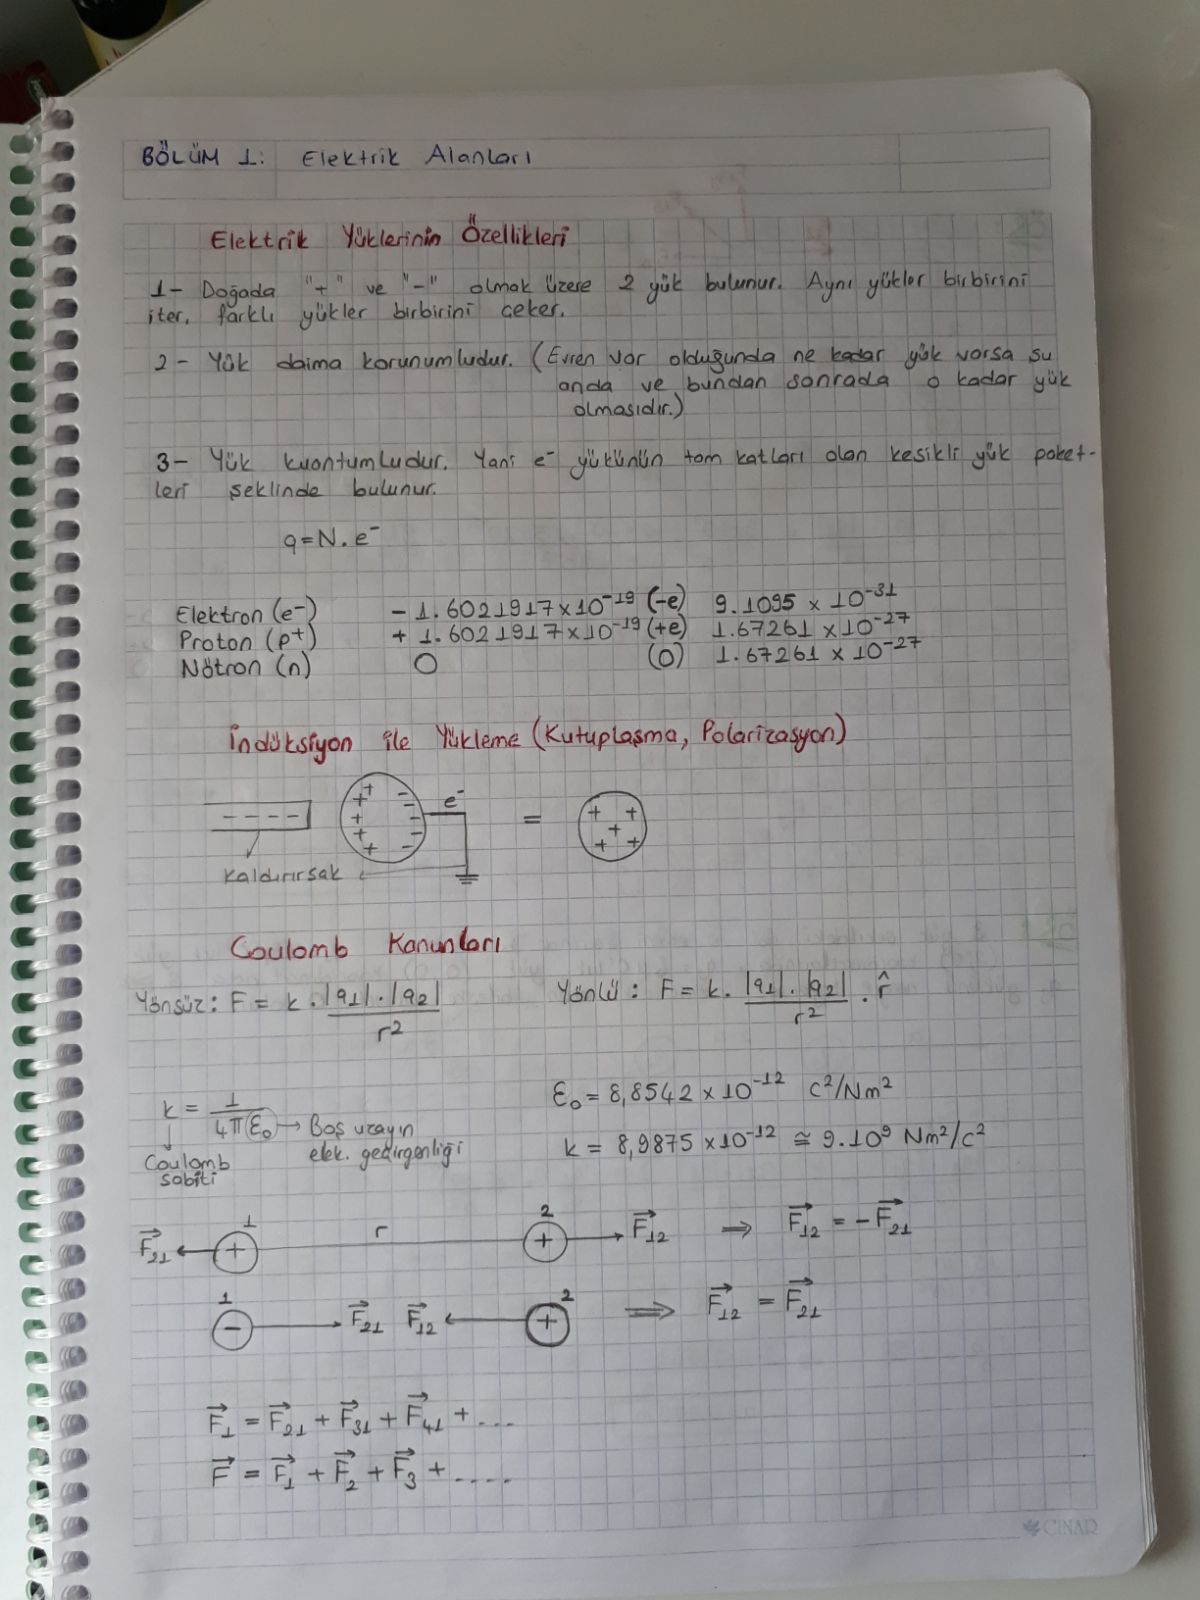 BÖLÜM 1: Elektrik Alanları
Elektrik Yüklerinin Özellikleri
1- Doğada "+" ve "-" olmak üzere 2 yük bulunur. Aynı yükler birbirini
iter, farklı yükler birbirini çeker.
2- Yük daima korunumludur. (Evren var olduğunda ne kadar yük varsa şu
anda ve bundan sonrada o kadar yük
olmasıdır.)
3- Yük kuantumludur. Yani e⁻ yükünün tam katları olan kesikli yük paket-
leri şeklinde bulunur.
q=N.e⁻
Elektron (e⁻) -1.6021917x10⁻¹⁹ (-e) 9.1095 x 10⁻³¹
Proton (p⁺) +1.6021917x10⁻¹⁹ (+e) 1.67261 x10⁻²⁷
Nötron (n) 0 (0) 1.67261 x 10⁻²⁷
İndüksiyon ile Yükleme (Kutuplaşma, Polarizasyon)
- - - - + + + + + - - - - - e⁻ = + + + + +
Kaldırırsak
Coulomb Kanunları
Yönsüz: F = k . |q1| . |q2| / r² Yönlü: F = k. |q1| . |q2| / r² . r̂
k = 1 / 4πε₀ → Boş uzayın
elek. geçirgenliği
Coulomb
sabiti
ε₀ = 8,8542 x 10⁻¹² C²/Nm²
k = 8,9875 x10⁻¹² ≅ 9.10⁹ Nm²/C²
F⃗21 ← 1 + r 2 + → F⃗12 ⇒ F⃗12 = -F⃗21
1 - → F⃗21 F⃗12 ← 2 + ⇒ F⃗12 = F⃗21
F⃗1 = F⃗21 + F⃗31 + F⃗41 + ....
F⃗ = F⃗1 + F⃗2 + F⃗3 + .....
ÇINAR